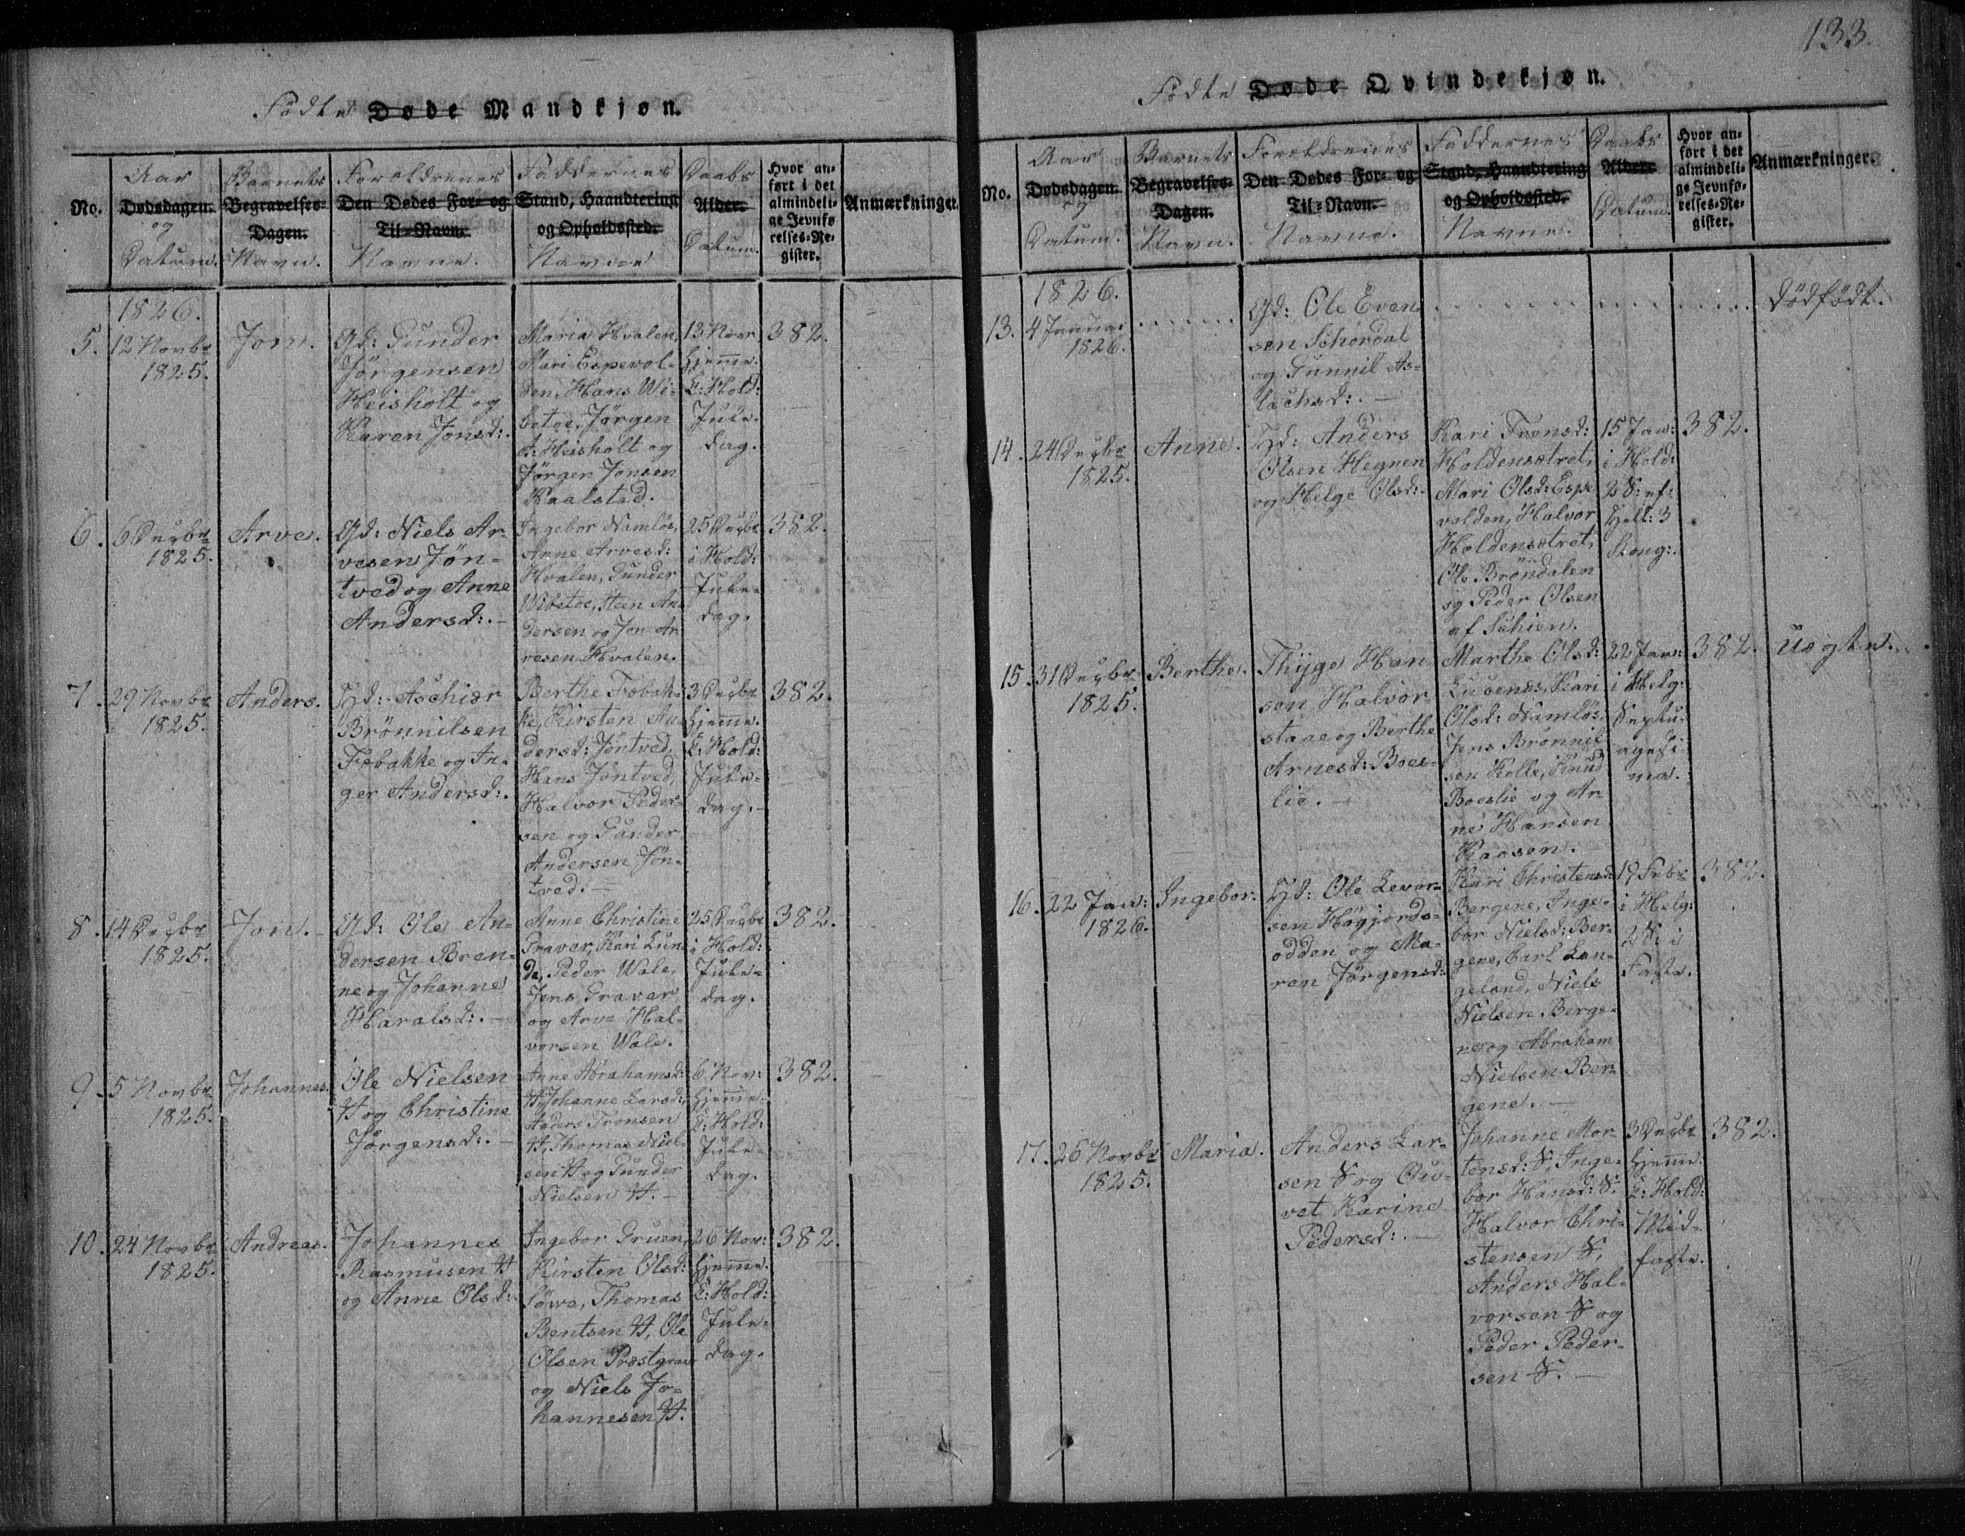 133.
Födte Døde Mandkjøn.
No.
Aar
Dødsdagen.
og
Datum.
Barnets
Begravelses-
Dagen.
Navn.
Forældrenes
Den Dødes For- og
Til-Navn.
Navne.
Faddernes
Stand, Haandtering
og Opholdssted.
Navne
Daabs
Alder.
Datum.
Hvor an-
ført i det
almindeli-
ge Jevnfø
relses-Re-
gister.
Anmærkninger.
1826.
5. 12 Novbr
1825.
Jom.
Gd: Gunder
Jörgensen
Heisholt og
Karen Jonsd:.
Maria Hvalen,
Mari Espevol-
den, Hans Wi-
betoe, Jörgen
A: Heisholt og
Jörgen Jonsen
Kaalstad.
13 Novr
hjemme.
C: Hold:
Jule-
dag.
382.
6. 6 Decbr
1825.
Arve.
Gd: Niels Ar-
vesen Jön-
tved og Anne
Andersd:.
Ingebor Namlös,
Anne Arvesd:
Hvalen, Gunder
Wibetoe, Steen An
dersen og Jon Ar
vesen Hvalen.
25 Decbr
i Hold:
Jule-
dag.
382.
7. 29 Novbr
1825.
Anders.
Hd: Aschier
Brönnilsen
Fæbakke og In-
ger Andersd:.
Berthe Fæbak-
ke, Kirsten An
dersd: Jöntved,
Hans Jöntved,
Halvor Peder-
sen og Gunder
Andersen Jön-
tved.
3 Decbr
hjemme.
C: Hold:
Jule-
dag.
382.
8. 14 Decbr
1825.
Jon.
Gd: Ole An-
dersen Bren-
ne og Johanne
Haralsd:.
Anne Christine
Graver, Kari Lun
de, Peder Wale,
Jens Graver
og Arve Hal-
vorsen Wale.
25 Decbr
i Hold:
Jule-
dag.
382.
9. 5 Novbr
1825.
Johannes.
Ole Nielsen
H og Christine
Jörgensd:.
Anne Abrahamsd:
H, Johanne Larsd:,
Anders Tronsen
H, Thomas Niel-
sen H og Gunder
Nielsen H.
6 Nov:
hjemme.
C: Hold:
Jule-
dag.
382.
10. 24 Novbr
1825.
Andreas.
Johannes
Rasmusen H
og Anne Olsd:.
Ingebor Gruen,
Kirsten Olsd:
Löwe, Thomas
Bentsen H, Ole
Olsen Præstgrav
og Niels Jo-
hannesen H.
26 Nov:
hjemme.
C: Hold:
Jule-
dag.
382.
Födte Døde Qvindekjøn.
No.
Aar
Dødsdagen.
og
Datum.
Barnets
Begravelses-
Dagen.
Navn.
Forældrenes
Den Dødes For- og
Til-Navn.
Navne.
Faddernes
Stand, Haandtering
og Opholdssted.
Navne.
Daabs
Alder.
Datum.
Hvor an-
ført i det
almindeli-
ge Jevnfø-
relses-Re-
gister.
Anmærkninger.
1826.
13. 4 Janua:
1826.
Gd: Ole Even
sen Schordal
og Gunnil As-
lachsd:.
Dödfödt.
14. 24 Decbr
1825.
Anne.
Hd: Anders
Olsen Hegnen
og Helge Olsd:.
Kari Tronsd:
Holdensætret,
Mari Olsd: Espe
volden, Halvor
Holdensætret,
Ole Bröndalen
og Peder Olsen
af Schien.
15 Jan:
i Hold:
2 S: ef:
Hell: 3
Kong:.
382.
15. 31 Decbr
1825.
Berthe.
Thyge Han
sen Halvor
staae og Berthe
Arnesd: Boes-
lie.
Marthe Olsd:
Luvenes, Kari
Olsd: Namlös,
Jens Brönnil
sen Kolle, Knud
Boeslie og Ar-
ne Hansen
Kaasen.
22 Jan:
i Helg:
Septu-
agesi-
ma.
382.
Uægte.
16. 22 Jan:
1826.
Ingebor.
Hd: Ole Levor-
sen Högjords-
odden og Ma-
ren Jörgensd:
Kari Christensd:
Bergene, Inge-
bor Nielsd: Ber-
gene, Carl Lan-
geland, Niels
Nielsen Berge-
ne og Abraham
Nielsen Ber-
gene.
19 Febr
i Helg:
2 S: i
Faste.
382.
17. 26 Novbr
1825.
Maria.
Anders Lar-
sen S og Oli-
vet Karine
Pedersd:.
Johanne Mor-
tensd: S, Inge-
bor Hansd: S,
Halvor Chri-
stensen S,
Anders Hal-
vorsen S og
Peder Peder-
sen S.
3 Decbr
hjemme.
C: Hold:
Mid-
faste.
382.